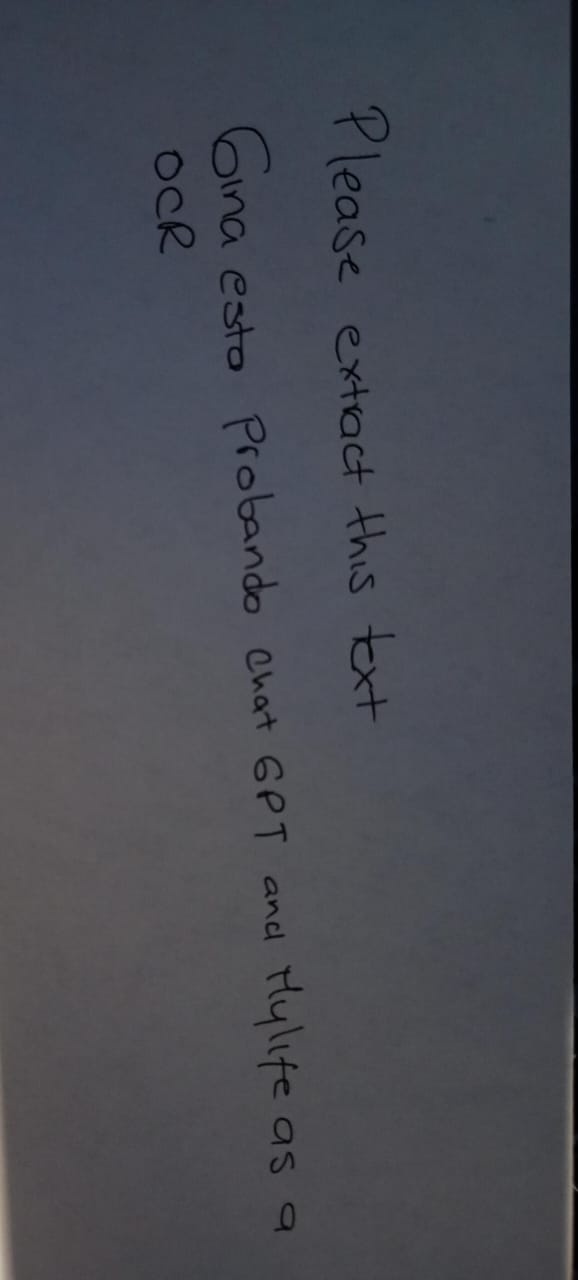 Please extract this text
Gina esto Probando chat GPT and Mylife as a
OCR